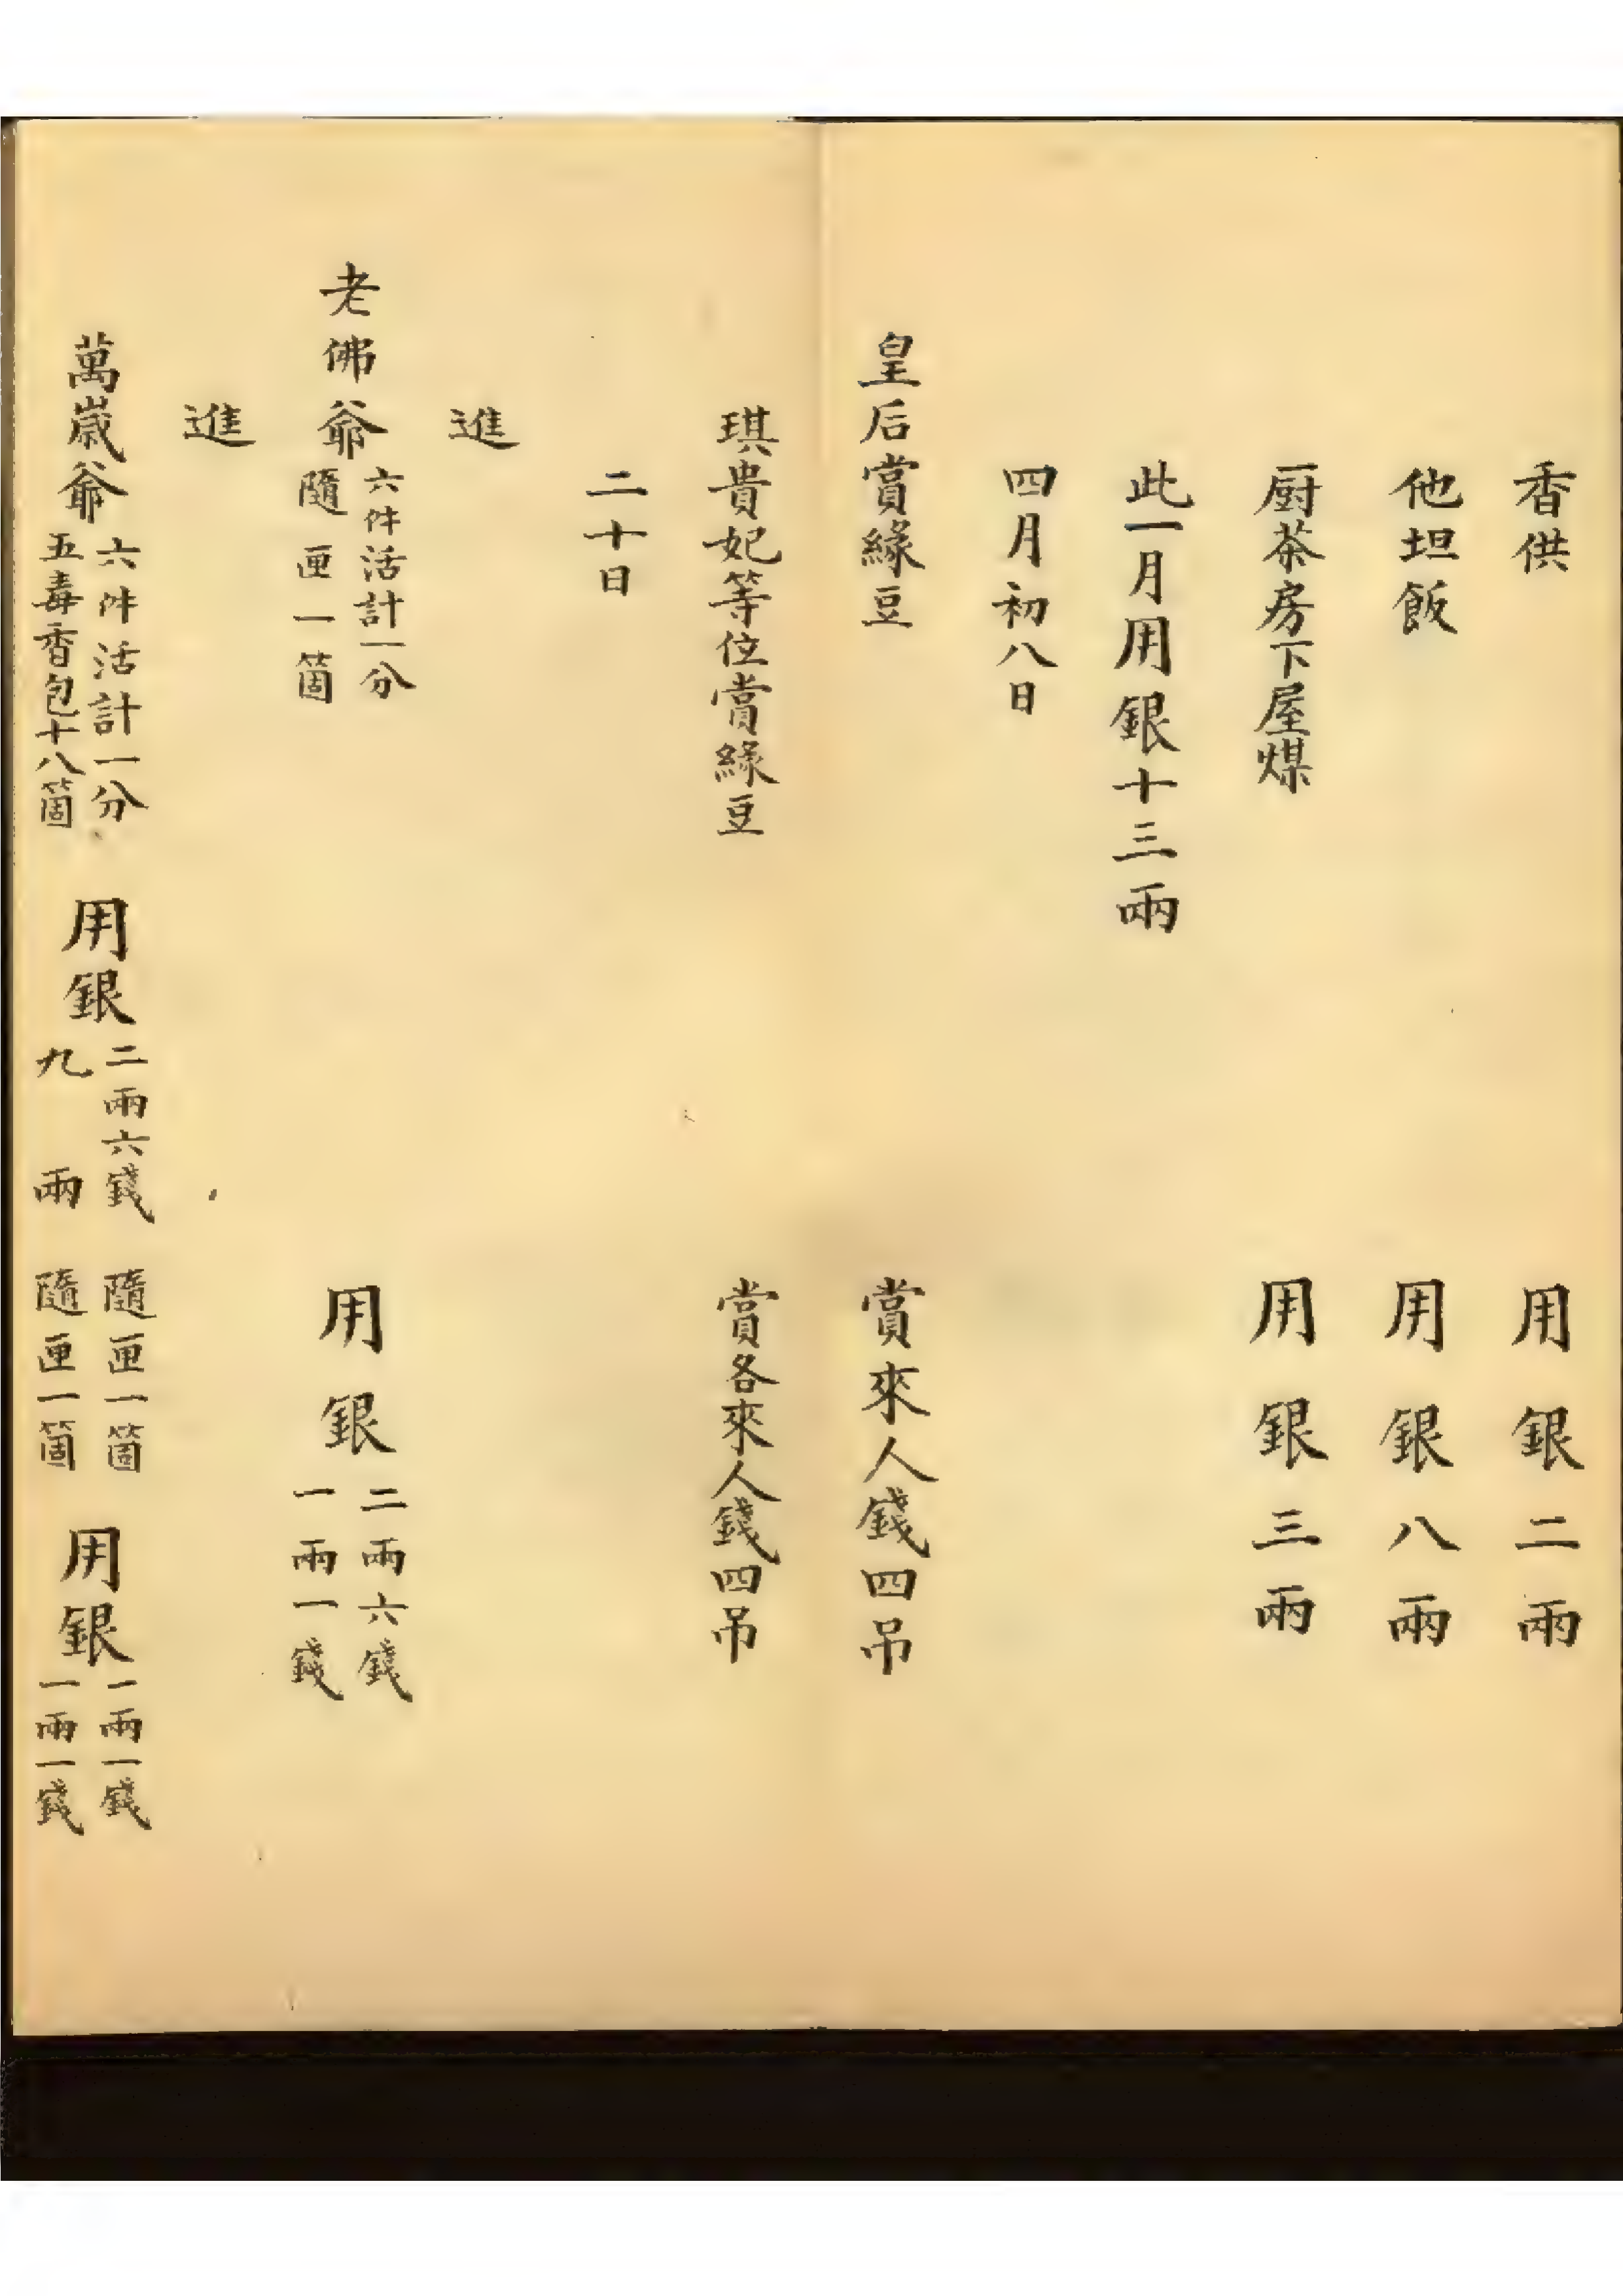 香供 用銀二兩
他坦飯 用銀八兩
厨茶房下屋煤 用銀三兩
此一月用銀十三兩
四月初八日
皇后賞緣豆 賞來人錢四吊
琪貴妃等位賞緣豆 賞各來人錢四吊
二十日
進
老佛爺 六件活計一分 隨匣一箇 用銀 二兩六錢 一兩一錢
進
萬歲爺 六件活計一分 五毒香包十八箇 用銀 二兩六錢 九兩 隨匣一箇 隨匣一箇 用銀 一兩一錢 一兩一錢